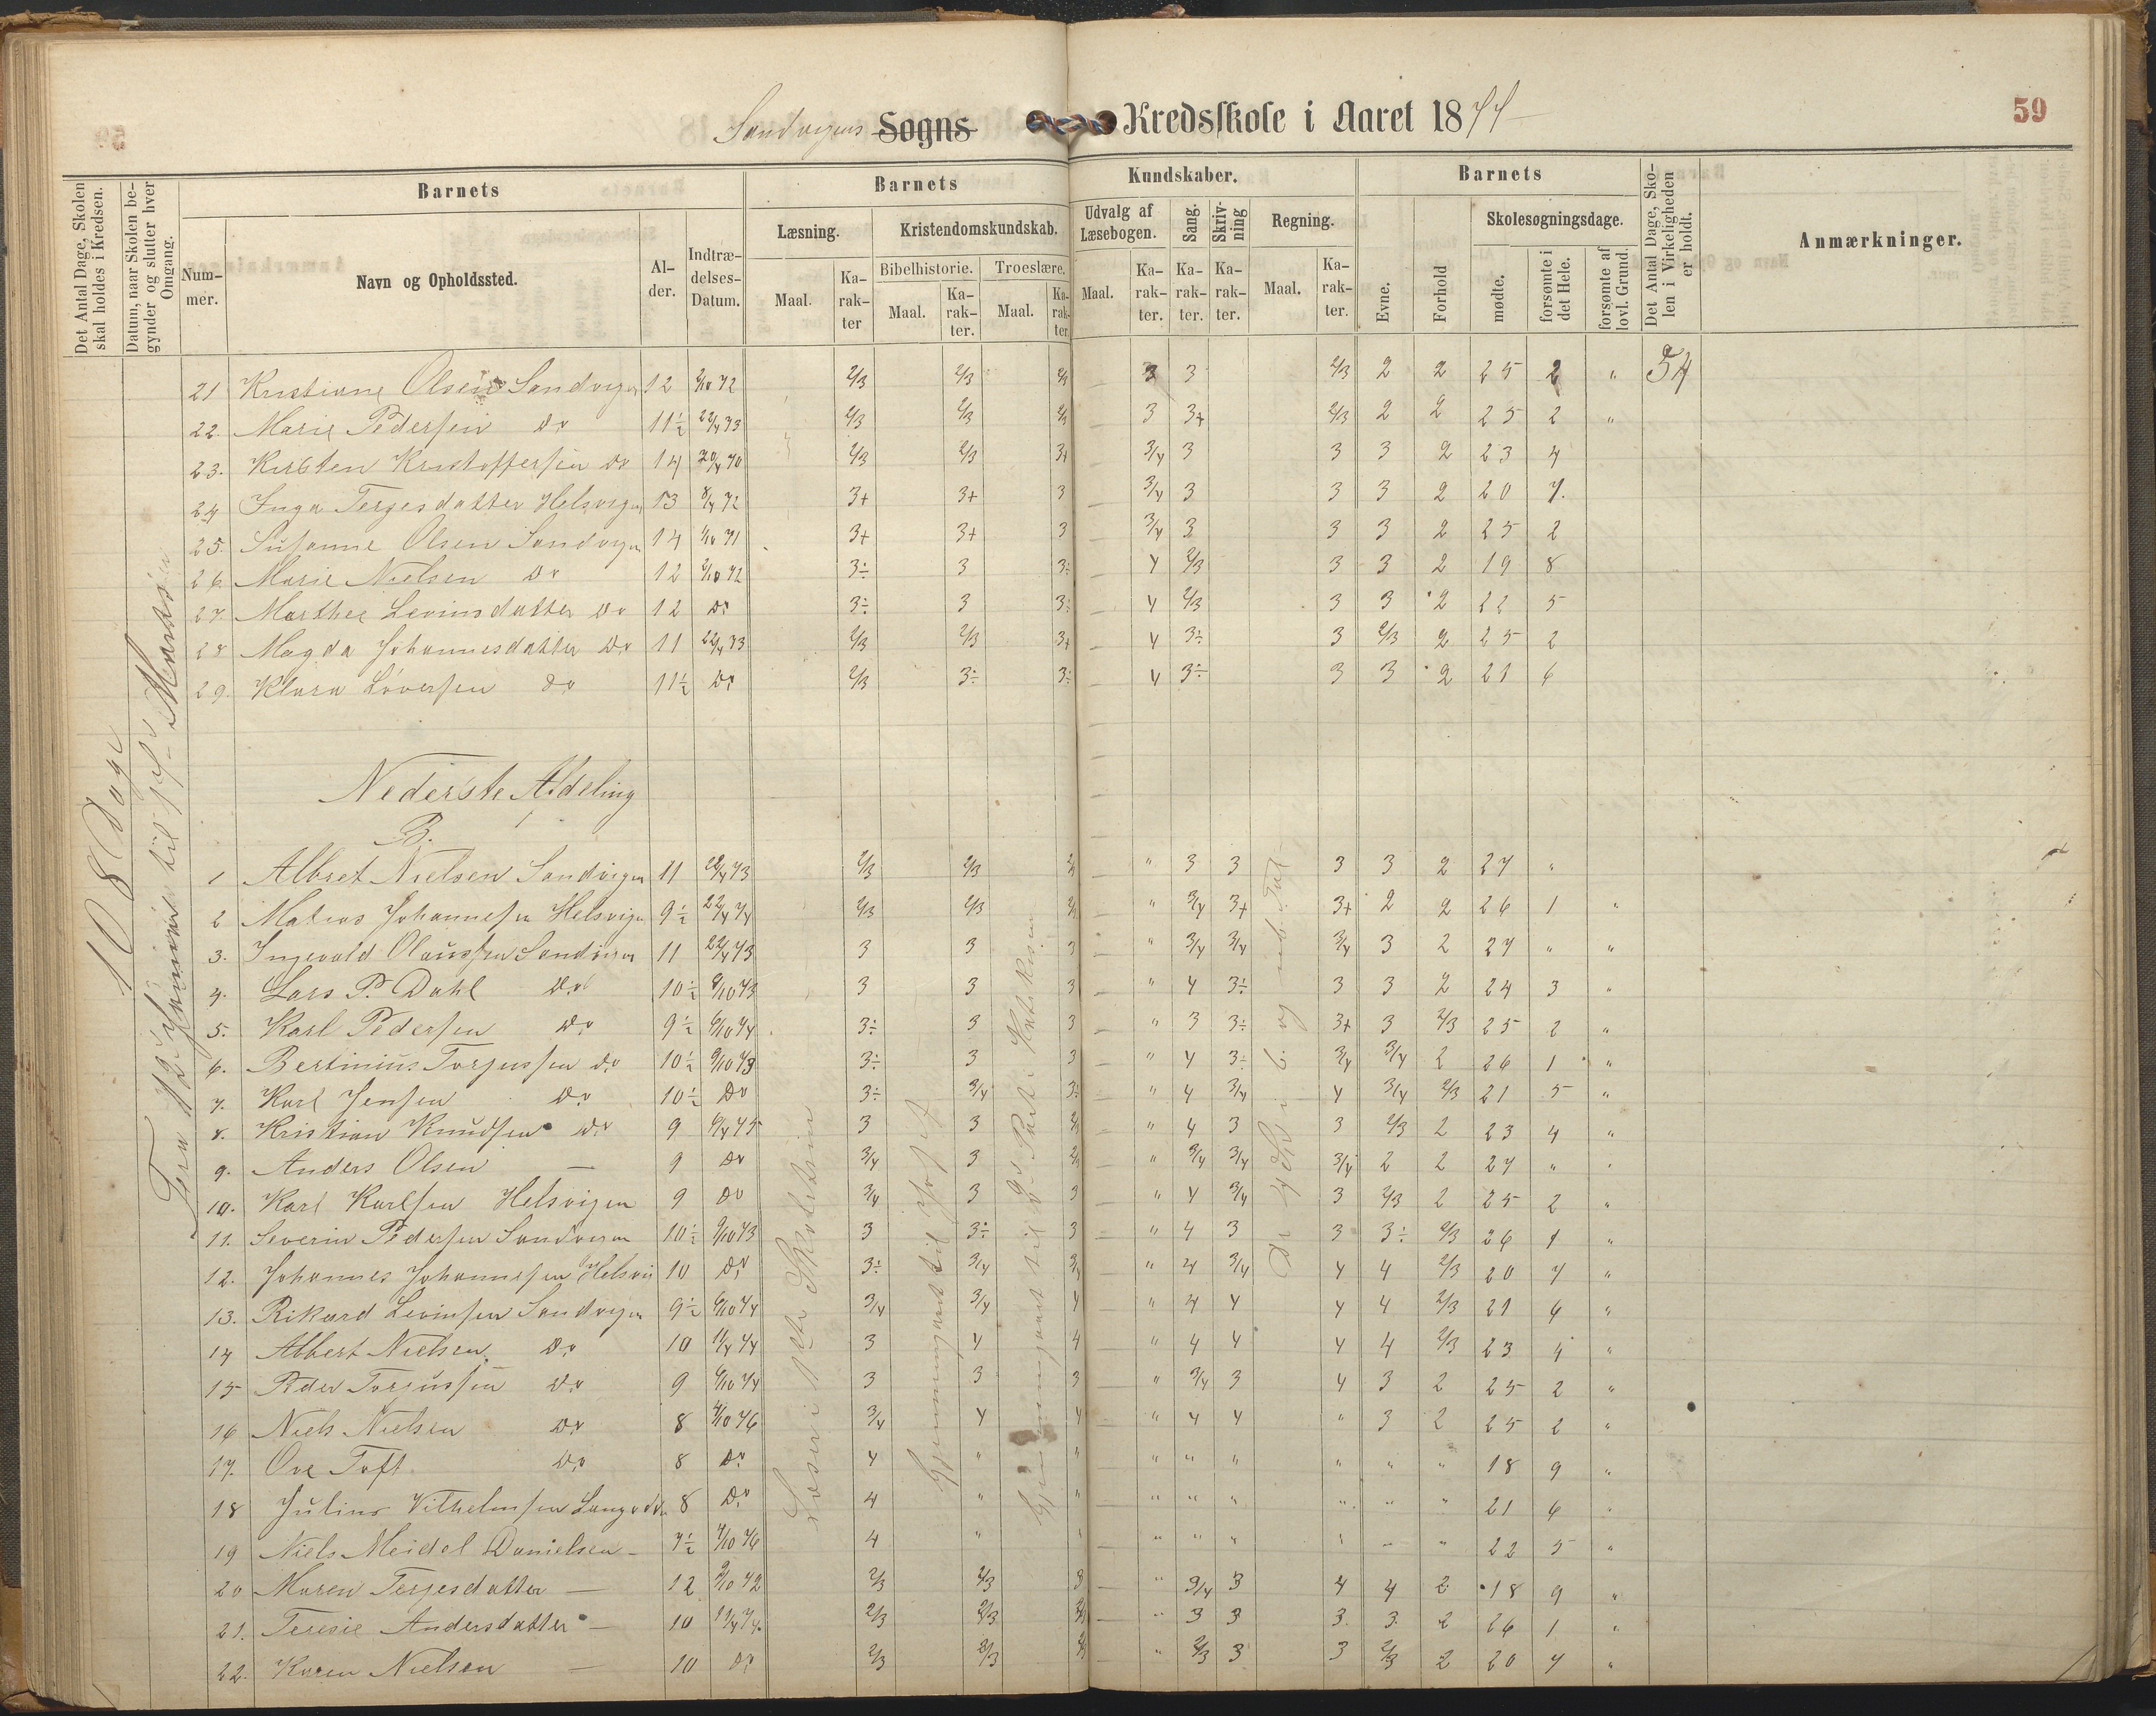 Sandvigens Sogns Kredsskole i Aaret 1877
59
Det Antal Dage, Skolen skal holdes i Kredsen.
Datum, naar Skolen begynder og slutter hver Omgang.
Barnets
Barnets Kundskaber.
Barnets
Det Antal Dage, Skolen i Virkeligheden er holdt.
Anmærkninger.
Nummer.
Navn og Opholdssted.
Alder.
Indtrædelses-Datum.
Læsning.
Kristendomskundskab.
Udvalg af Læsebogen.
Sang.
Skrivning
Regning.
Evne.
Forhold
Skolesøgningsdage.
Bibelhistorie.
Troeslære.
Maal.
Karakter
Maal.
Karakter.
Maal.
Karakter
Maal.
Karakter.
Karakter.
Karakter.
Maal.
Karakter.
mødte.
forsømte i det Hele.
forsømte af lovl. Grund.
108 Dage
21 Kristiane Olsen Sandvigen 12 2/10 72 2/3 2/3 2/3 3 3 2/3 2 2 25 2 " 54
22. Marie Pedersen Do 11½ 22/4 73 2/3 2/3 2/3 3 3+ 2/3 2 2 25 2 "
23. Kirsten Kristoffersen Do 14 20/4 70 2/3 2/3 3+ 3/4 3 3 3 2 23 4
24 Inga Terjesdatter Helsvigen 13 8/4 72 3+ 3+ 3 3/4 3 3 3 2 20 7.
25. Susanne Olsen Sandvigen 14 4/10 71 3+ 3+ 3 3/4 3 3 3 2 25 2
26. Marie Nielsen Do 12 2/10 72 3÷ 3 3÷ 4 2/3 3 3 2 19 8
27. Marthe Levinsdatter Do 12 Do 3÷ 3 3÷ 4 2/3 3 3 2 22 5
28 Magda Johannesdatter Do 11 22/4 73 2/3 2/3 3+ 4 3÷ 3 2/3 2 25 2
29. Klara Löversen Do 11½ Do 2/3 3÷ 3÷ 4 3÷ 3 3 2 21 6
Nederste Afdeling
B.
1 Albret Nielsen Sandvigen 11 22/4 73 2/3 2/3 2/3 " 3 3 3 3 2 27 "
2 Matias Johannesen Helsvigen 9½ 22/4 74 2/3 2/3 2/3 " 3/4 3+ 3+ 2 2 26 1 "
3. Ingevald Olaussen Sandvigen 11 22/4 73 3 3 3 " 3/4 3/4 3/4 3 2 27 " "
4. Lars P. Dahl Do 10½ 9/10 73 3 3 3 " 4 3÷ 3 3 2 24 3 "
5. Karl Pedersen Do 9½ 6/10 74 3÷ 3 3 " 3 3÷ 3+ 3 2/3 25 2 "
6. Bertinius Torjussen Do 10½ 9/10 73 3÷ 3 3 " 4 3÷ 3/4 3/4 2 26 1 "
7. Karl Jensen Do 10½ Do 3÷ 3/4 3÷ " 4 3/4 4 3/4 2/3 21 5 "
8. Kristian Knudsen Do 9 6/4 75 3 3 2/3 " 4 3 3 2/3 2 23 4 "
9. Anders Olsen — 9 Do 3/4 3 2/3 " 3/4 3/4 3/4 2 2 27 " "
10. Karl Karlsen Helsvigen 9 Do 3/4 3 3 " 4 3/4 3 2/3 2 25 2 "
11. Severin Pedersen Sandvigen 10½ 9/10 73 3 3÷ 3 " 4 3 3 3÷ 2/3 26 1 "
12. Johannes Johannesen Helsvig 10 Do 3÷ 3/4 3/4 " 4 3/4 4 4 2/3 20 7 "
13. Rikard Levinsen Sandvigen 9½ 6/10 74 3/4 3/4 4 " 4 4 4 4 2/3 21 6 "
14 Albert Nielsen Do 10 11/4 74 3 4 4 " 4 4 4 4 2/3 23 4 "
15 Peder Torjussen Do 9 6/10 74 3 3 3 " 3/4 3 4 3 2 25 2 "
16 Niels Nielsen Do 8 4/10 76 3/4 4 4 " 4 4 " 3 2 25 2 "
17. Ove Toft Do 8 Do 4 " " " " " " " " 18 9 "
18 Julius Vilhelmsen 8 Do 4 " " " " " " " " 21 6 "
19 Niels Meidel Danielsen — 7½ 4/10 76 4 " " " " " " " " 22 5 "
20 Maren Terjesdatter — 12 2/10 72 2/3 2/3 3 " 3/4 3 4 4 2 18 9 "
21. Teresie Andersdatter — 10 11/4 74 2/3 2/3 2/3 " 3 3 3 3 2 26 1 "
22. Karen Nielsen — 10 Do 2/3 2/3 2/3 " 2/3 3 3 2/3 2 20 7 "